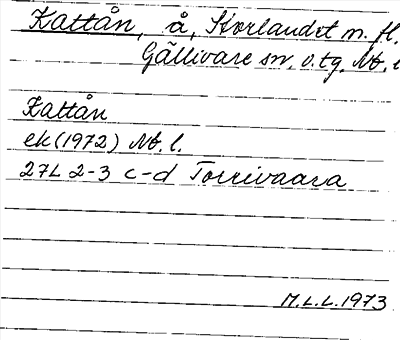 Kattån, å, Storlandet m. fl.
Gällivare sn, o. tg. Nb. l
Kattån
ek (1972) Nb. l.
27L 2-3 c-d Torrivaara
M.L.L. 1973